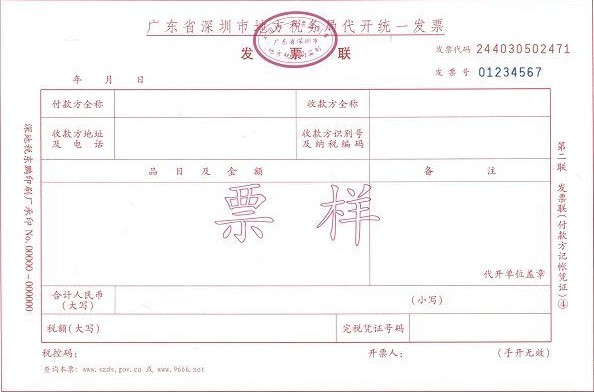 广东省深圳市地方税务局代开统一发票
广东省深圳市
发票联
发票代码 244030502471
发票号 01234567
年 月 日
付款方全称 收款方全称
收款方地址及电话 收款方识别号及纳税编码
品目及金额 备注
票样
代开单位盖章
合计人民币(大写) (小写)
税额(大写) 完税凭证号码
税控码: 开票人: (手开无效)
查询本票: www.szds.gov.cn 或 www.9666.net
深地税东鹏印刷厂承印 No.00000-000000
第二联 发票联(付款方记帐凭证)④